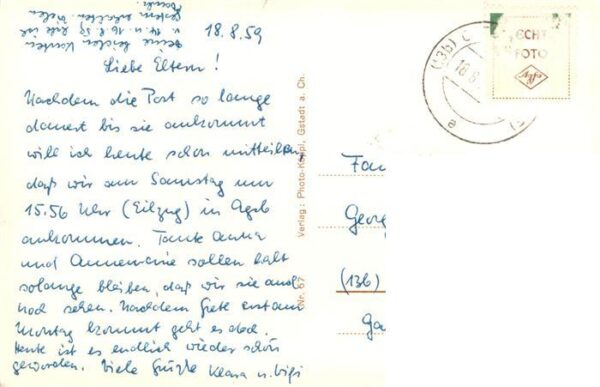 18.8.59
Liebe Eltern!
Nachdem die Post so lange
dauert bis sie ankommt
will ich heute schon mitteilen,
daß wir am Samstag um
15.56 Uhr (Eilzug) in Agsb
ankommen. Tante Anna
und Annemarie sollen halt
solange bleiben, daß wir sie auch
noch sehen. Nachdem Grete erst am
Montag kommt geht es doch.
Heute ist es endlich wieder schön
geworden. Viele Grüße Klara u.
Deine beiden Karten
v. 14. u. 16.8.59 habe ich
gestern erhalten. Vielen
Dank.
Verlag: Photo-Knippl, Gstadt a. Ch.
Nr. 67
(13b)
18.8.
a
ECHT
FOTO
Fam
Georg
(13b)